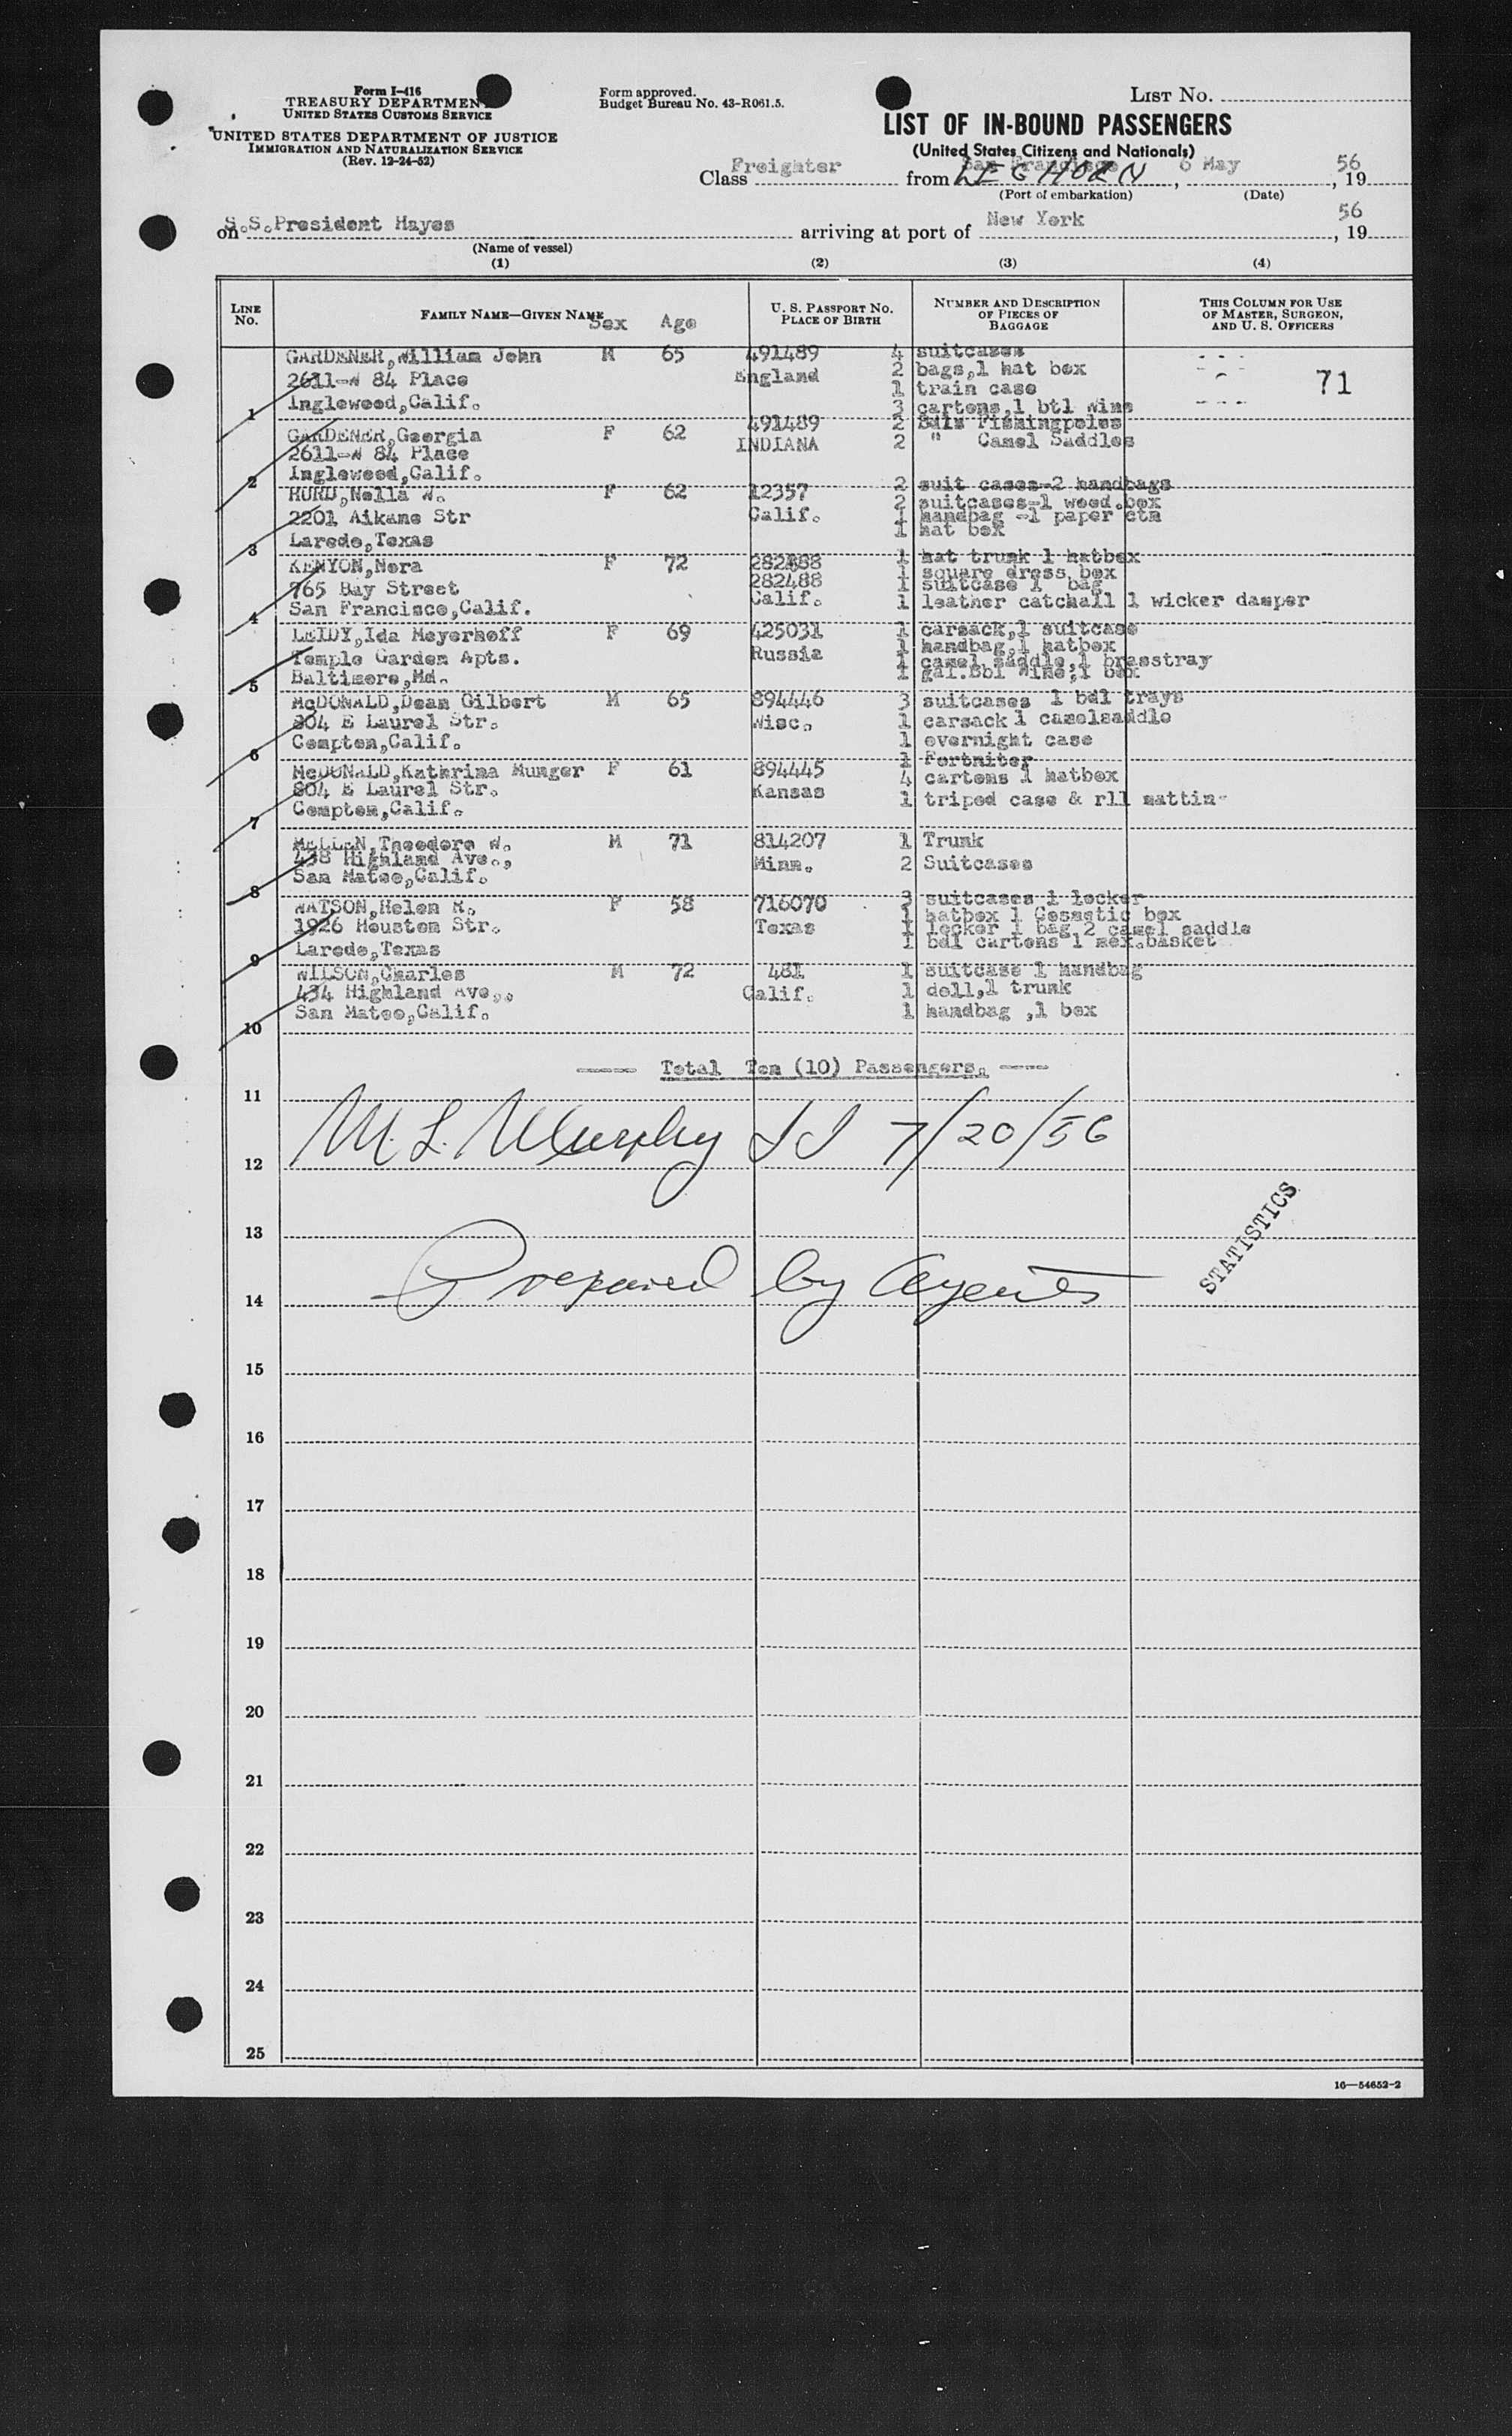 Form I-416
TREASURY DEPARTMENT
UNITED STATES CUSTOMS SERVICE
UNITED STATES DEPARTMENT OF JUSTICE
IMMIGRATION AND NATURALIZATION SERVICE
(Rev. 12-24-52)
Form approved.
Budget Bureau No. 43-R061.5.
LIST NO.
LIST OF IN-BOUND PASSENGERS
(United States Citizens and Nationals)
Class Freighter from San Francisco LEGHORN, 6 May, 1956
(Port of embarkation) (Date)
on S.S.President Hayes arriving at port of New York, 1956
(Name of vessel)
(1) (2) (3) (4)
LINE NO. FAMILY NAME—GIVEN NAME Sex Age U. S. PASSPORT NO. PLACE OF BIRTH NUMBER AND DESCRIPTION OF PIECES OF BAGGAGE THIS COLUMN FOR USE OF MASTER, SURGEON, AND U. S. OFFICERS
GARDENER,William John M 65 491489 4 suitcases
2611-W 84 Place England 2 bags,1 hat box 71
Inglewood,Calif. 1 train case
1 3 cartons,1 btl Wine
GARDENER,Georgia F 62 491489 2 Fishingpoles
2611-W 84 Place INDIANA 2 " Camel Saddles
Inglewood,Calif.
2 2 suit cases-2 handbags
HURD,Nella W. F 62 12357 2 suitcases-1 wood.box
2201 Aikane Str Calif. 1 handbag -1 paper ctn
Laredo,Texas 1 hat box
3
KENYON,Nora F 72 282488 1 hat trunk 1 hatbox
1 square dress box
765 Bay Street 282488 1 suitcase 1 bag
San Francisco,Calif. Calif. 1 leather catchall 1 wicker damper
4
LEIDY,Ida Meyerhoff F 69 425031 1 carsack,1 suitcase
1 handbag,1 hatbox
Temple Garden Apts. Russia 1 camel saddle,1 brasstray
Baltimore,Md. 1 gal.Bbl Wine,1 box
5
McDONALD,Dean Gilbert M 65 894446 3 suitcases 1 bdl trays
804 E Laurel Str. Wisc. 1 carsack 1 camelsaddle
Compton,Calif. 1 overnight case
6 1 Fortniter
McDONALD,Kathrina Munger F 61 894445 4 cartons 1 hatbox
804 E Laurel Str. Kansas 1 tripod case & rll mattin-
Compton,Calif.
7
MELLEN,Theodore W. M 71 814207 1 Trunk
438 Highland Ave., Minn. 2 Suitcases
San Mateo,Calif.
8
WATSON,Helen R. F 58 716070 3 suitcases 1 locker
1 hatbox 1 Cosmetic box
1926 Houston Str. Texas 1 locker 1 bag 2 camel saddle
Laredo,Texas 1 bdl cartons 1 mex.basket
9
WILSON,Charles M 72 481 1 suitcase 1 handbag
434 Highland Ave., Calif. 1 doll,1 trunk
San Mateo,Calif. 1 handbag ,1 box
10
Total Ten (10) Passengers.
11
M. L. Murphy II 7/20/56
12
STATISTICS
13
Prepared by Agents
14
15
16
17
18
19
20
21
22
23
24
25
16—54652-2